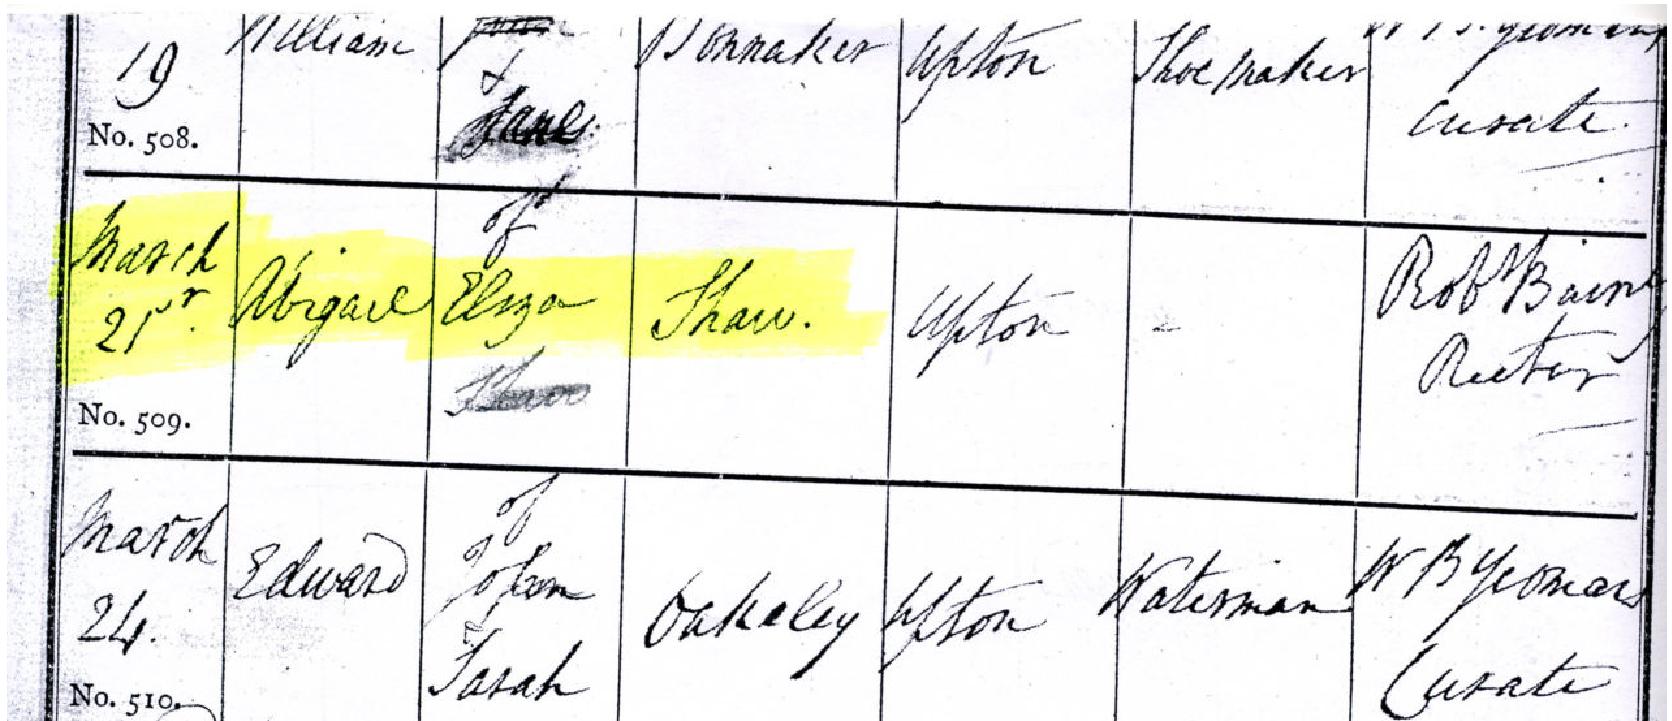 19 William & Jane Upton Shoemaker
Curate.
No. 508.
March 21st. Abigail of Eliza Shaw. Upton - Robt Baines
Rector
No. 509.
March 24. Edward of John Sarah Oakeley Upton Waterman W B Yeomans
Curate
No. 510.